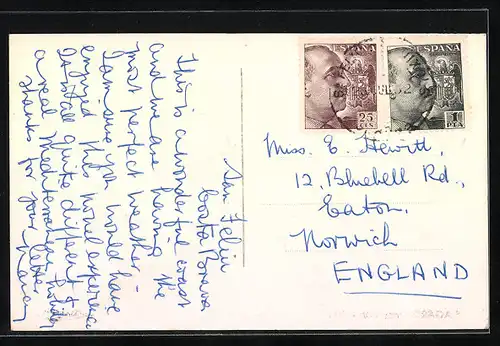 ESPAÑA
ESPAÑA
25
CTS
1
PTA
San Feliu
Costa Brava
This is a wonderful coast
and we are having the
most perfect weather.
I am sure you would have
enjoyed this novel experience
It is all quite different &
a real Mediterranean holiday
thanks for your letter
Miss. E. Hewitt,
12, Bluebell Rd.,
Eaton,
Norwich
ENGLAND